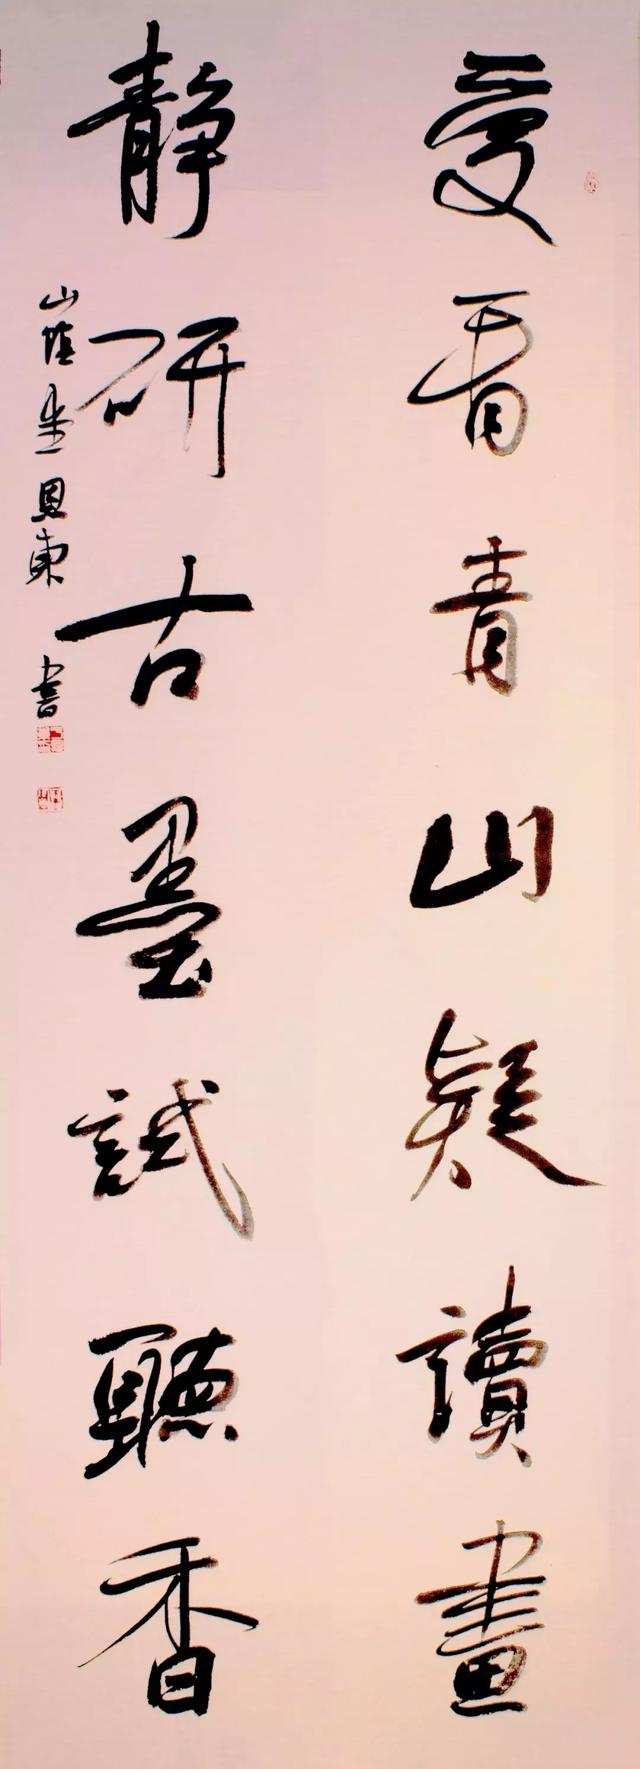 愛看青山疑讀畫
靜研古墨試聽香
山陰 恩東 書